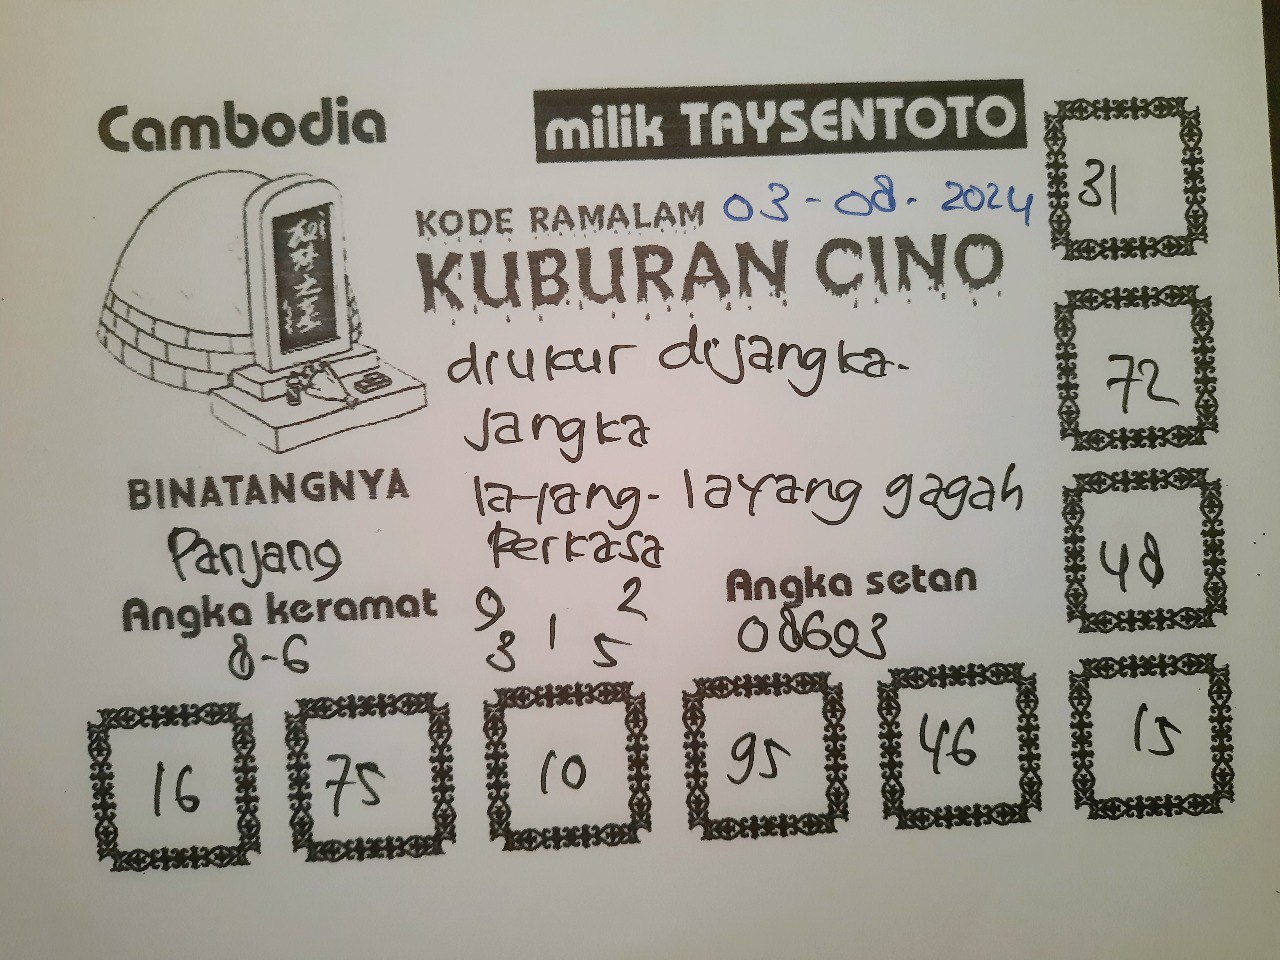 Cambodia
milik TAYSENTOTO
KODE RAMALAM 03-08-2024
KUBURAN CINO
diukur disangka-
jangka
layang-layang gagah
perkasa
BINATANGNYA
Panjang
Angka keramat
8-6
9 2
3 1 5
Angka setan
08693
31
72
48
16
75
10
95
46
15